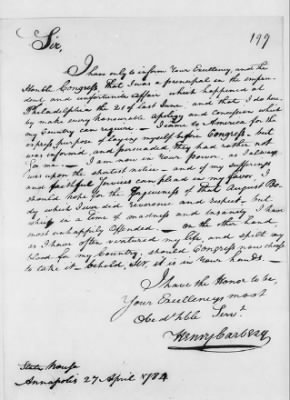 199
Sir,
I have only to inform Your Excellency, and the
Honble Congress, that I was a principal in the impru-
dent and unfortunate affair which happened at
Philadelphia the 21st of last June: and that I do here-
by make every honourable apology and concession which
my Country can require — I came to Honour for the
express purpose of laying myself before Congress, but
was informed and persuaded they had rather not
I am now in Your Power,
was upon the shortest notice — and if my sufferings
and faithful services can plead in my favor, I
should hope for the forgiveness of that August Bo-
dy which I ever did reverence and respect — but
in a time of madness and insanity I have
most unhappily offended — on the other hand
as I have often ventured my life, and spilt my
blood for my Country, should Congress now chose
to take it — behold, Sir, it is in Your hands —
I have the Honor to be,
Your Excellencys most
Obed. Hble Servt.
Henry Carbery
State House
Annapolis 27 April 1784